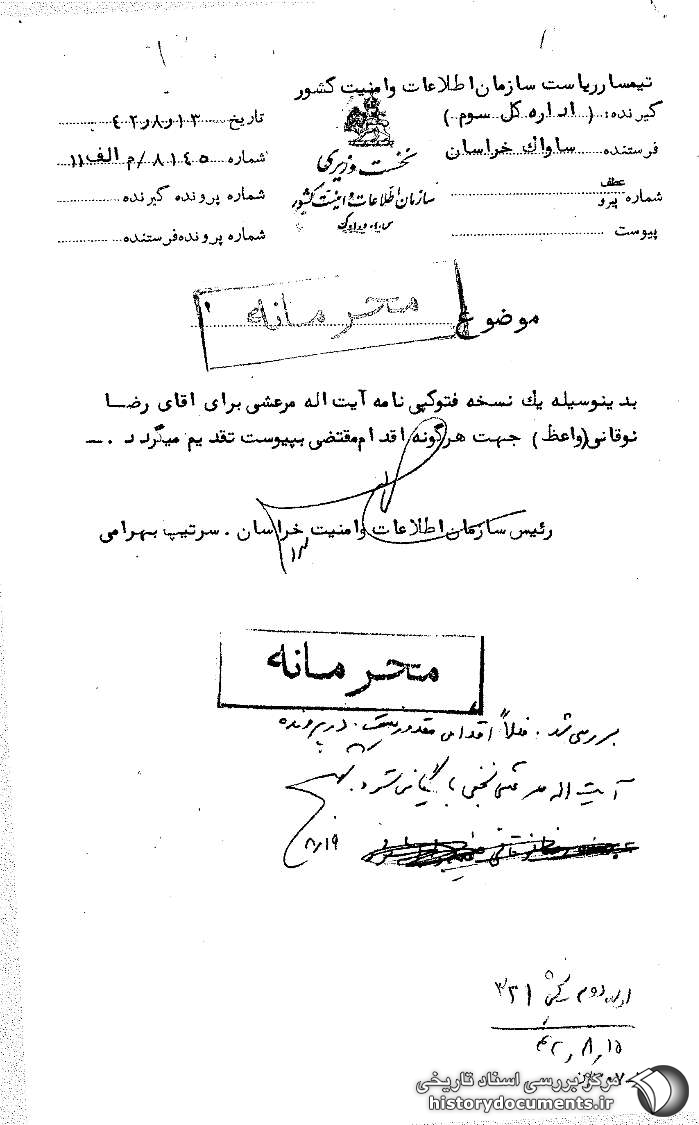 تیمسار ریاست سازمان اطلاعات وامنیت کشور
گیرنده: ( اداره کل سوم )
فرستنده ساواک خراسان
عطف
شماره پیرو
پیوست
نخست وزیری
سازمان اطلاعات و امنیت کشور
س.ا.و.ا.ک
تاریخ ۴۲/۸/۱۳
شماره ۸۱۴۵/م الف ۱۱
شماره پرونده گیرنده
شماره پرونده فرستنده
موضوع
محرمانه
بدینوسیله یک نسخه فتوکپی نامه آیت اله مرعشی برای اقای رضا
نوقانی(واعظ) جهت هرگونه اقدام مقتضی بپیوست تقدیم میگردد .ــ
رئیس سازمان اطلاعات وامنیت خراسان . سرتیپ بهرامی
محرمانه
بررسی شد . فعلاً اقدامی مقدور نیست . در پرونده
آیت اله مرعشی نجفی بایگانی شود .
۸/۱۹
دوم ۳۲۱
۴۲/۸/۱۵
مرکز بررسی اسناد تاریخی
historydocuments.ir